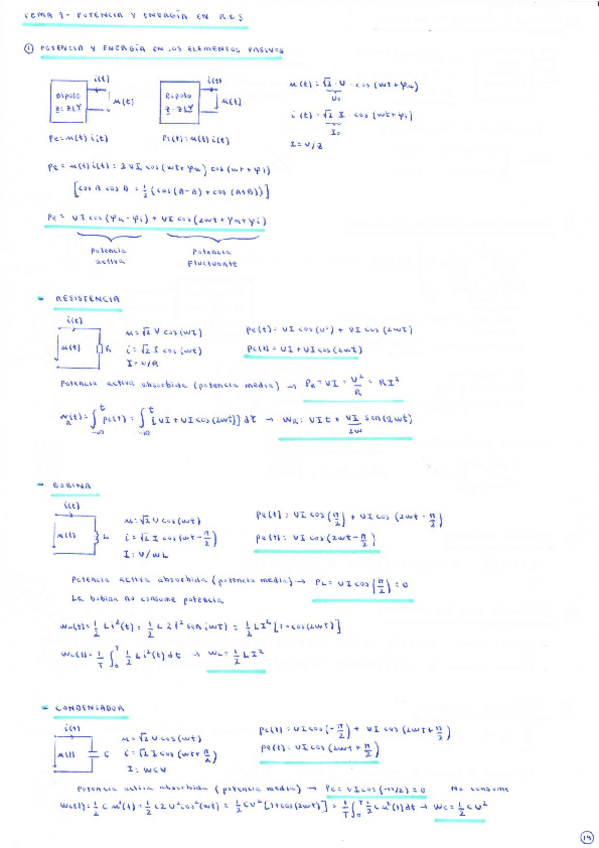 TEMA 9- POTENCIA Y ENERGÍA EN R.E.S
① POTENCIA Y ENERGÍA EN LOS ELEMENTOS PASIVOS
i(t) i(t)
Bipolo u(t) Bipolo u(t)
u(t) = √2 · U · cos(wt+φu)
U₀
i(t) = √2 I cos(wt+φi)
I₀
I = U/Z
Pe = u(t) i(t) u(t) i(t)
Pe = u(t) i(t) = 2 U I cos(wt+φu) cos(wt+φi)
[cos A cos B = 1/2 (cos(A-B) + cos(A+B))]
Pe = UI cos(φu-φi) + UI cos(2wt+φu+φi)
Potencia activa Potencia fluctuante
- RESISTENCIA
i(t)
u(t) R
u = √2 U cos(wt)
i = √2 I cos(wt)
I = U/R
Pe(t) = UI cos(0°) + UI cos(2wt)
Pe(t) = UI + UI cos(2wt)
Potencia activa absorbida (potencia media) → PR = UI = U²/R = RI²
∫ᵗ₋∞ Pe(t) = ∫ᵗ₋∞ [UI + UI cos(2wt)] dt → WR = UIt + UI/2w sen(2wt)
- BOBINA
i(t)
u(t) L
u = √2 U cos(wt)
i = √2 I cos(wt - π/2)
I = U/wL
Pe(t) = UI cos(π/2) + UI cos(2wt - π/2)
Pe(t) = UI cos(2wt - π/2)
Potencia activa absorbida (potencia media) → PL = UI cos(π/2) = 0
La bobina no consume potencia
= 1/2 L i²(t) = 1/2 L 2I² sen(wt) = 1/2 LI² [1-cos(2wt)]
= 1/T ∫₀ᵀ 1/2 L i²(t) dt → WL = 1/2 LI²
- CONDENSADOR
i(t)
u(t) C
u = √2 U cos(wt)
i = √2 I cos(wt + π/2)
I = WCU
Pe(t) = UI cos(-π/2) + UI cos(2wt + π/2)
Pe(t) = UI cos(2wt + π/2)
Potencia activa absorbida (potencia media) → Pc = UI cos(-π/2) = 0 No consume
= 1/2 C u²(t) = 1/2 C2U² cos²(wt) = 1/2 CU² [1+cos(2wt)] = 1/T ∫₀ᵀ 1/2 C u²(t) dt → WC = 1/2 CU²